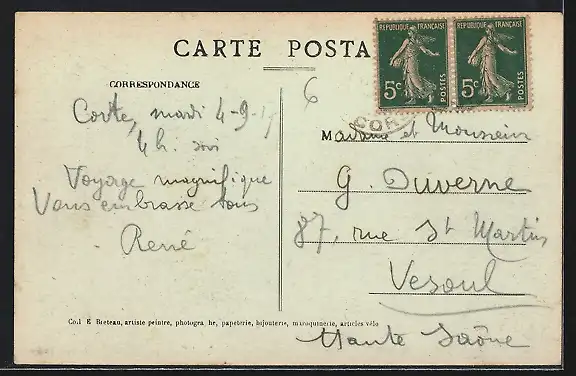 CARTE POSTA
RÉPUBLIQUE FRANÇAISE
5c
POSTES
RÉPUBLIQUE FRANÇAISE
5c
POSTES
COR
CORRESPONDANCE
6
Corte, mardi 4-9-17
4h. soir
Voyage magnifique
Vous embrasse tous
René
Madame et Monsieur
G. Duverne
87, rue St Martin
Vesoul
Haute Saône
Col E Breteau, artiste peintre, photogra he, papeterie, bijouterie, maroquinerie, articles vélo